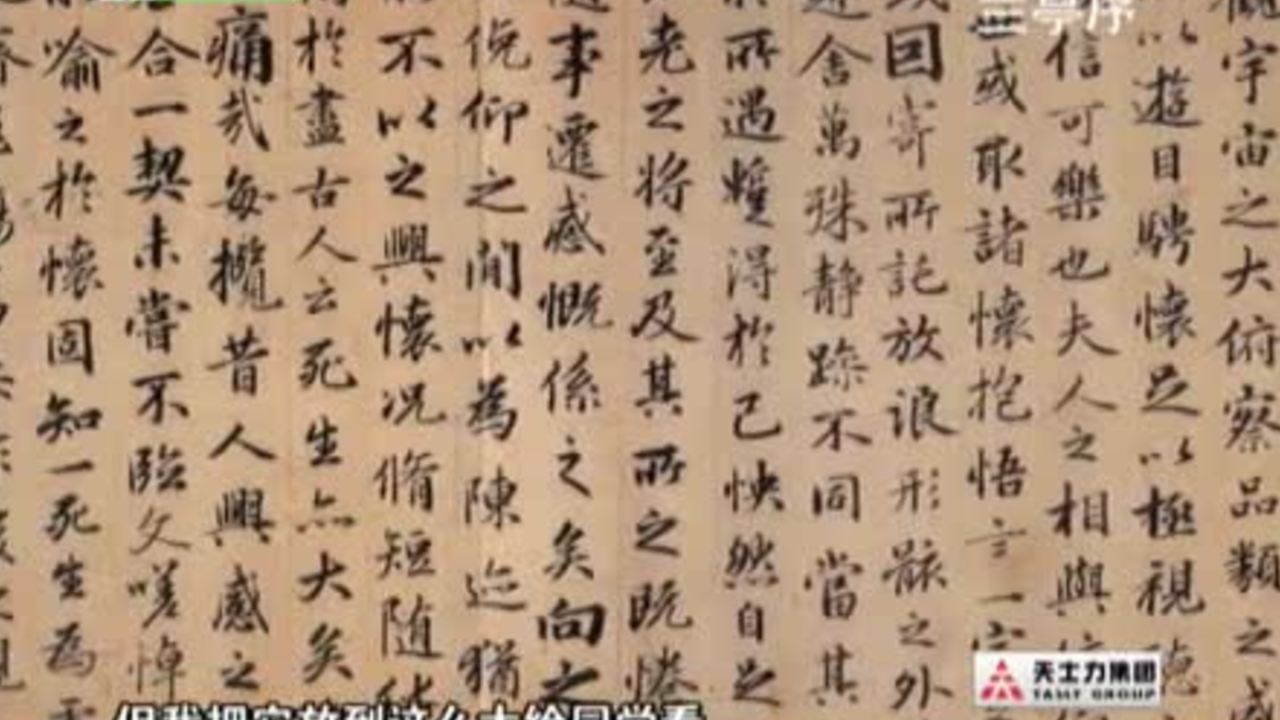 兰亭序
宇宙之大俯察品類之盛
以遊目騁懷足以極視聽
信可樂也夫人之相與
或取諸懷抱悟言一室
因寄所託放浪形骸之外
舍萬殊靜躁不同當其
所遇蹔得於己怏然自足
老之將至及其所之既惓
事遷感慨係之矣向之
俛仰之閒以為陳迹猶
不以之興懷況脩短隨
於盡古人云死生亦大矣
痛哉每攬昔人興感之
合一契未嘗不臨文嗟悼
喻之於懷固知一死生為
天士力集团
TASLY GROUP
但我把它放到这么大给同学看